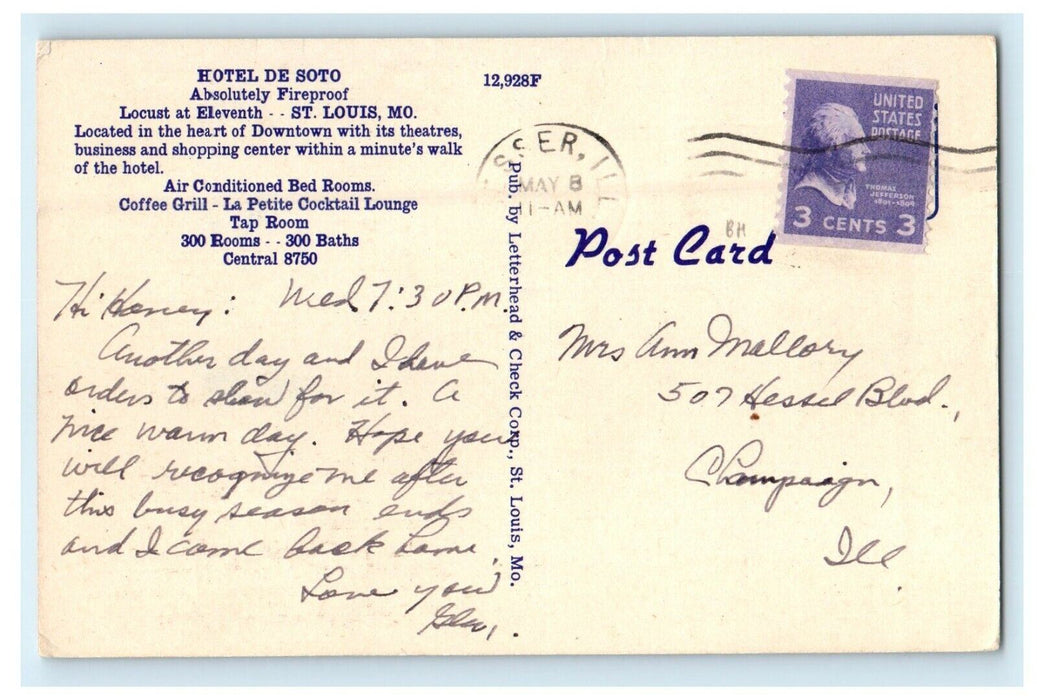 HOTEL DE SOTO
Absolutely Fireproof
Locust at Eleventh - - ST. LOUIS, MO.
Located in the heart of Downtown with its theatres,
business and shopping center within a minute's walk
of the hotel.
Air Conditioned Bed Rooms.
Coffee Grill - La Petite Cocktail Lounge
Tap Room
300 Rooms - - 300 Baths
Central 8750
Hi Honey: Wed. 7:30 P.M.
Another day and I have
orders to show for it. A
nice warm day. Hope you
will recognize me after
this busy season ends
and I come back home.
Love you
12,928F
Pub. by Letterhead & Check Corp., St. Louis, Mo.
SSER, ILL
MAY 8
11-AM
UNITED
STATES
POSTAGE
THOMAS
JEFFERSON
1801-1809
3 CENTS 3
BH
Post Card
Mrs Ann Mallory
507 Hessel Blvd.,
Champaign,
Ill.